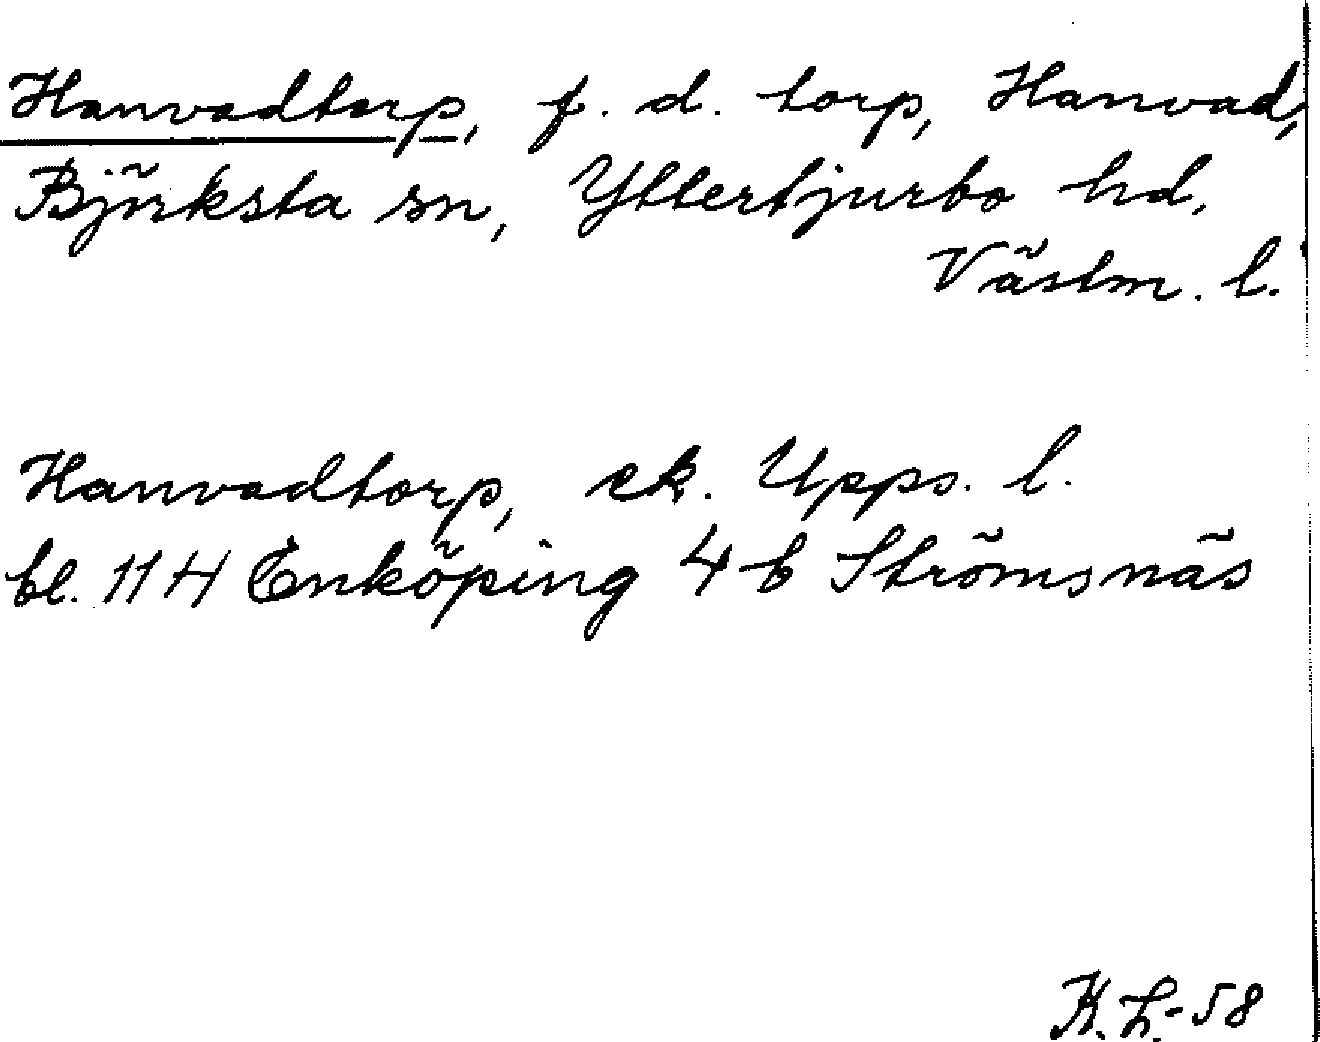 Hanvadtorp, f. d. torp, Hanvad,
Björksta sn, Yttertjurbo hd,
Västm. l.
Hanvadtorp, ek. Upps. l.
bl. 11 H Enköping 4 b Strömsnäs
K. L. -58